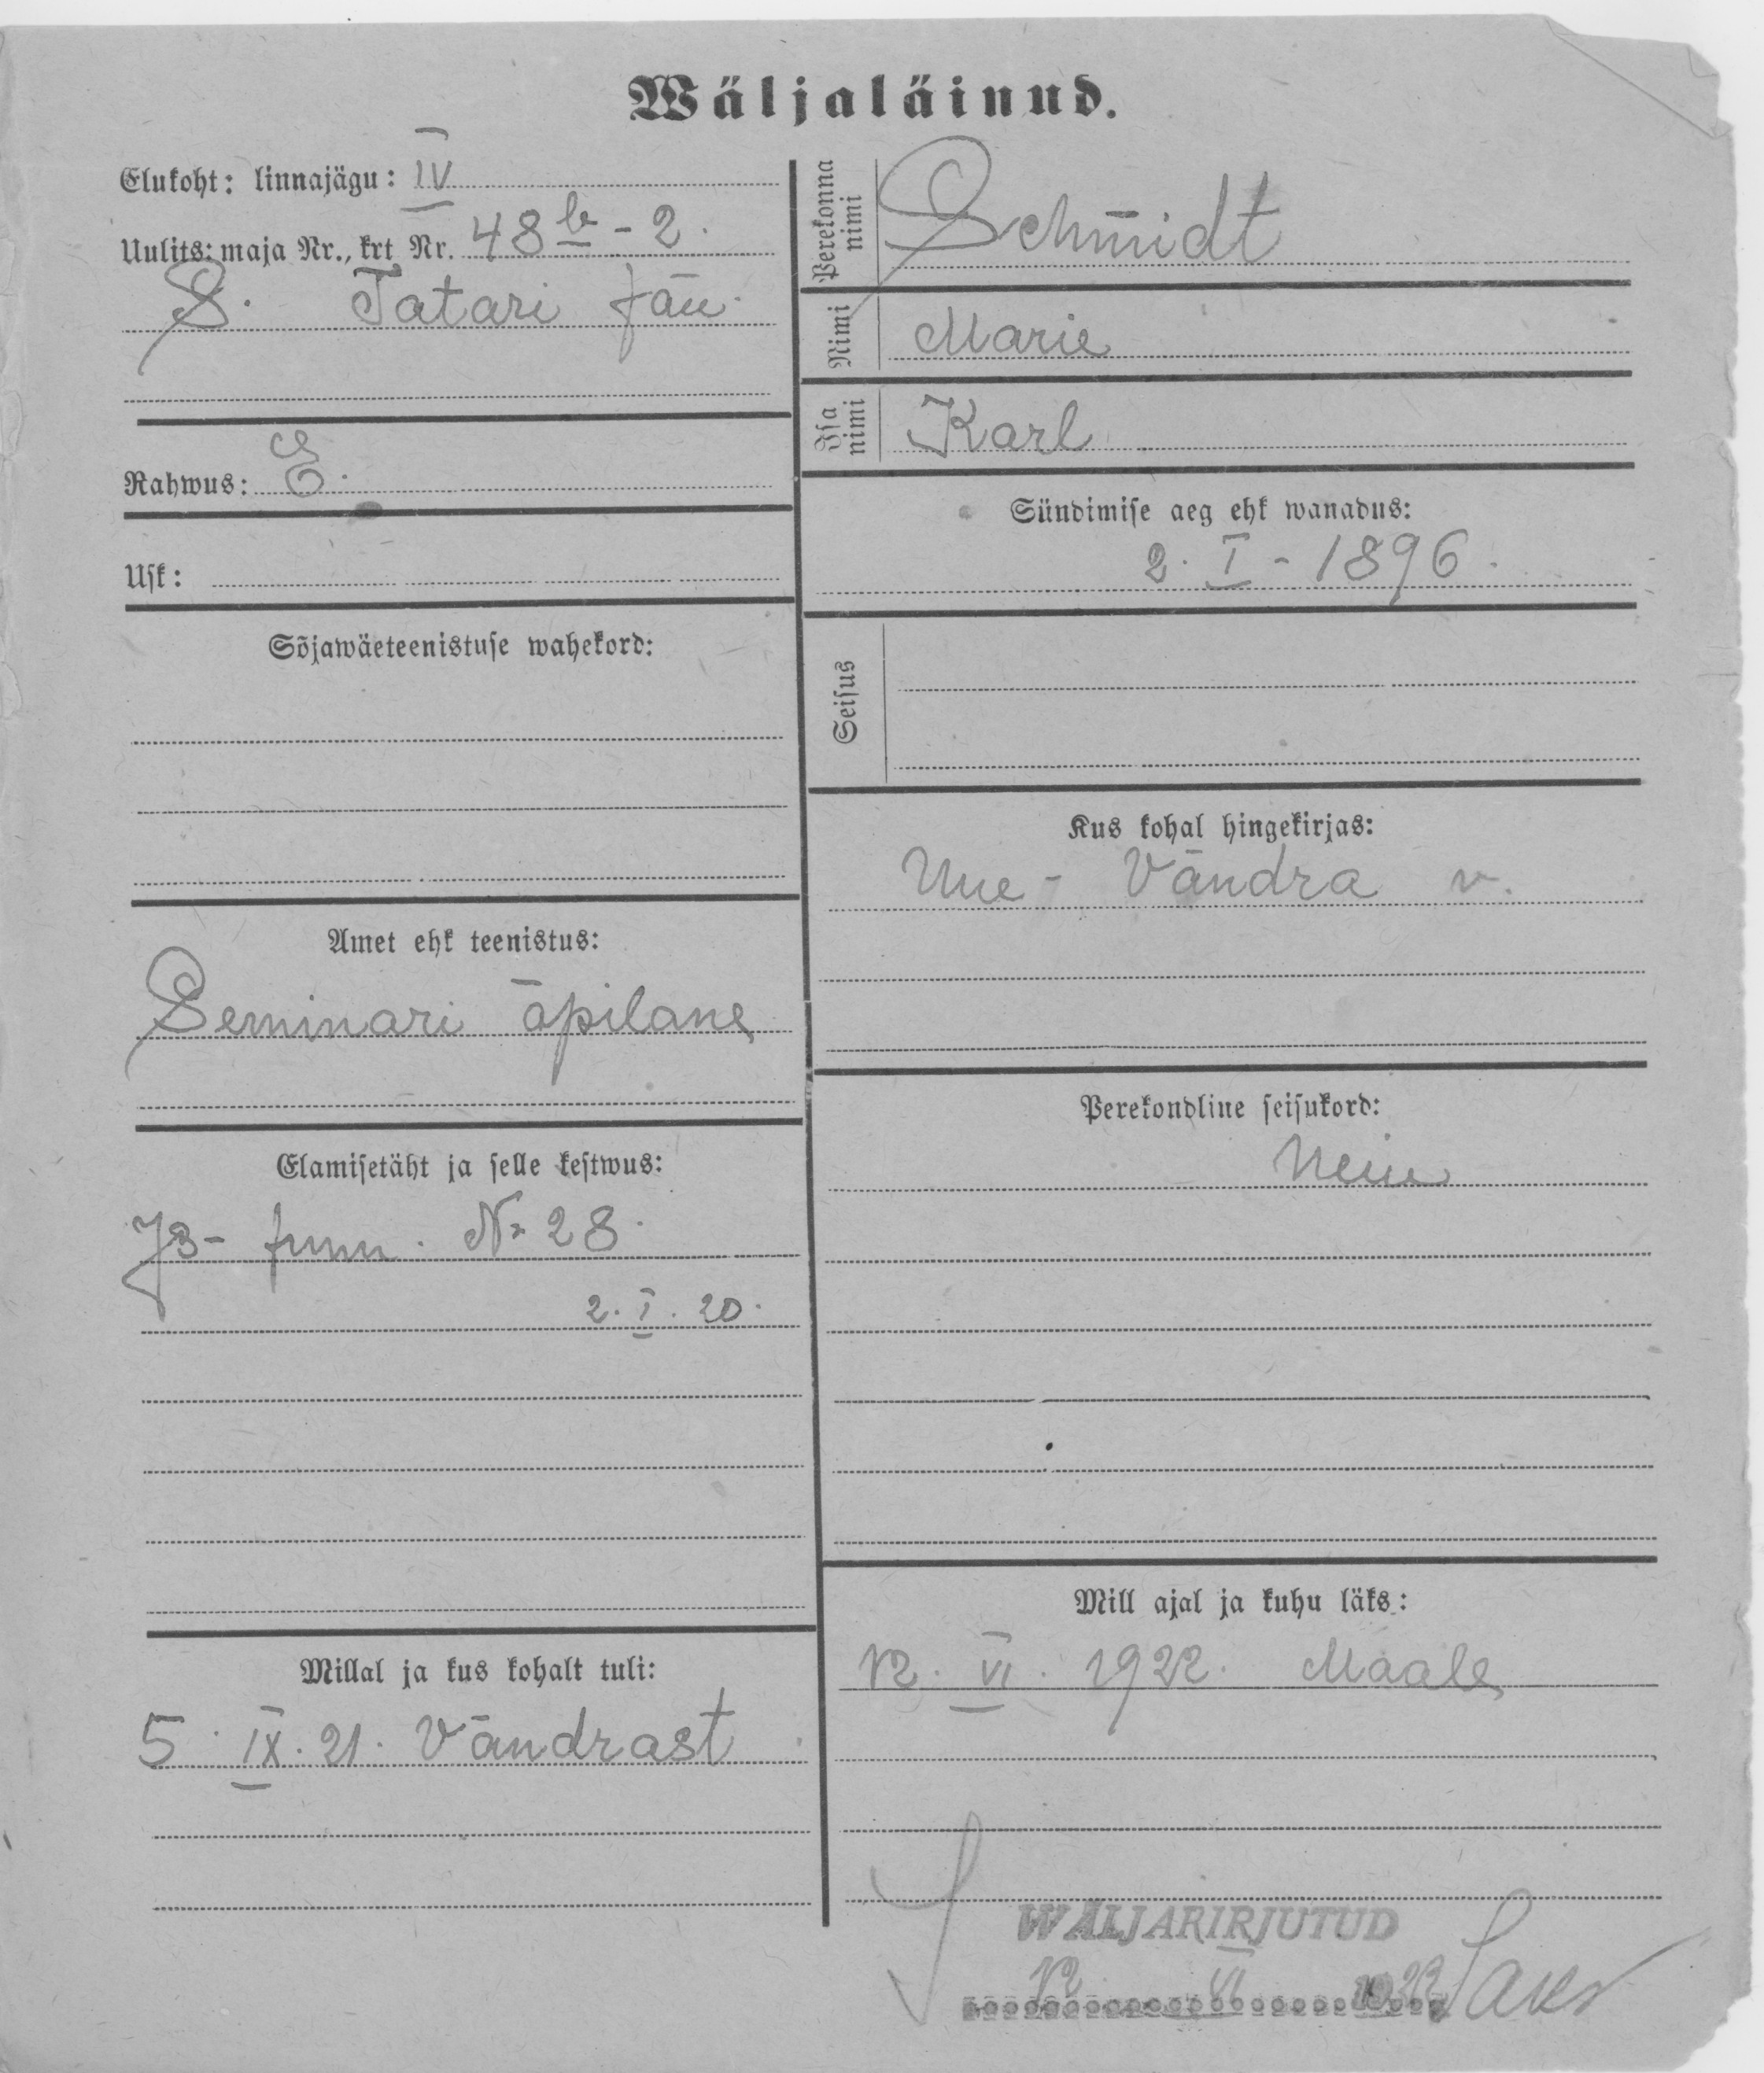 Wäljaläinud.
Elukoht: linnajägu: IV
Uulits: maja Nr., krt Nr. 48b - 2.
S. Tatari tän.
Rahwus: E.
Usk:
Sõjawäeteenistuse wahekord:
Amet ehk teenistus:
Seminari õpilane
Elamisetäht ja selle kestwus:
№ 28.
2. I. 20.
Millal ja kus kohalt tuli:
5. IX. 21. Vändrast
Perekonna nimi
Schmidt
Nimi
Marie
Isa nimi
Karl
Sündimise aeg ehk wanadus:
2. I - 1896.
Seisus
Kus kohal hingekirjas:
Uue - Vändra v.
Perekondline seisukord:
Neiu
Mill ajal ja kuhu läks:
12. VI. 1922. Maale
WÄLJAKIRJUTUD
12 VI 1922